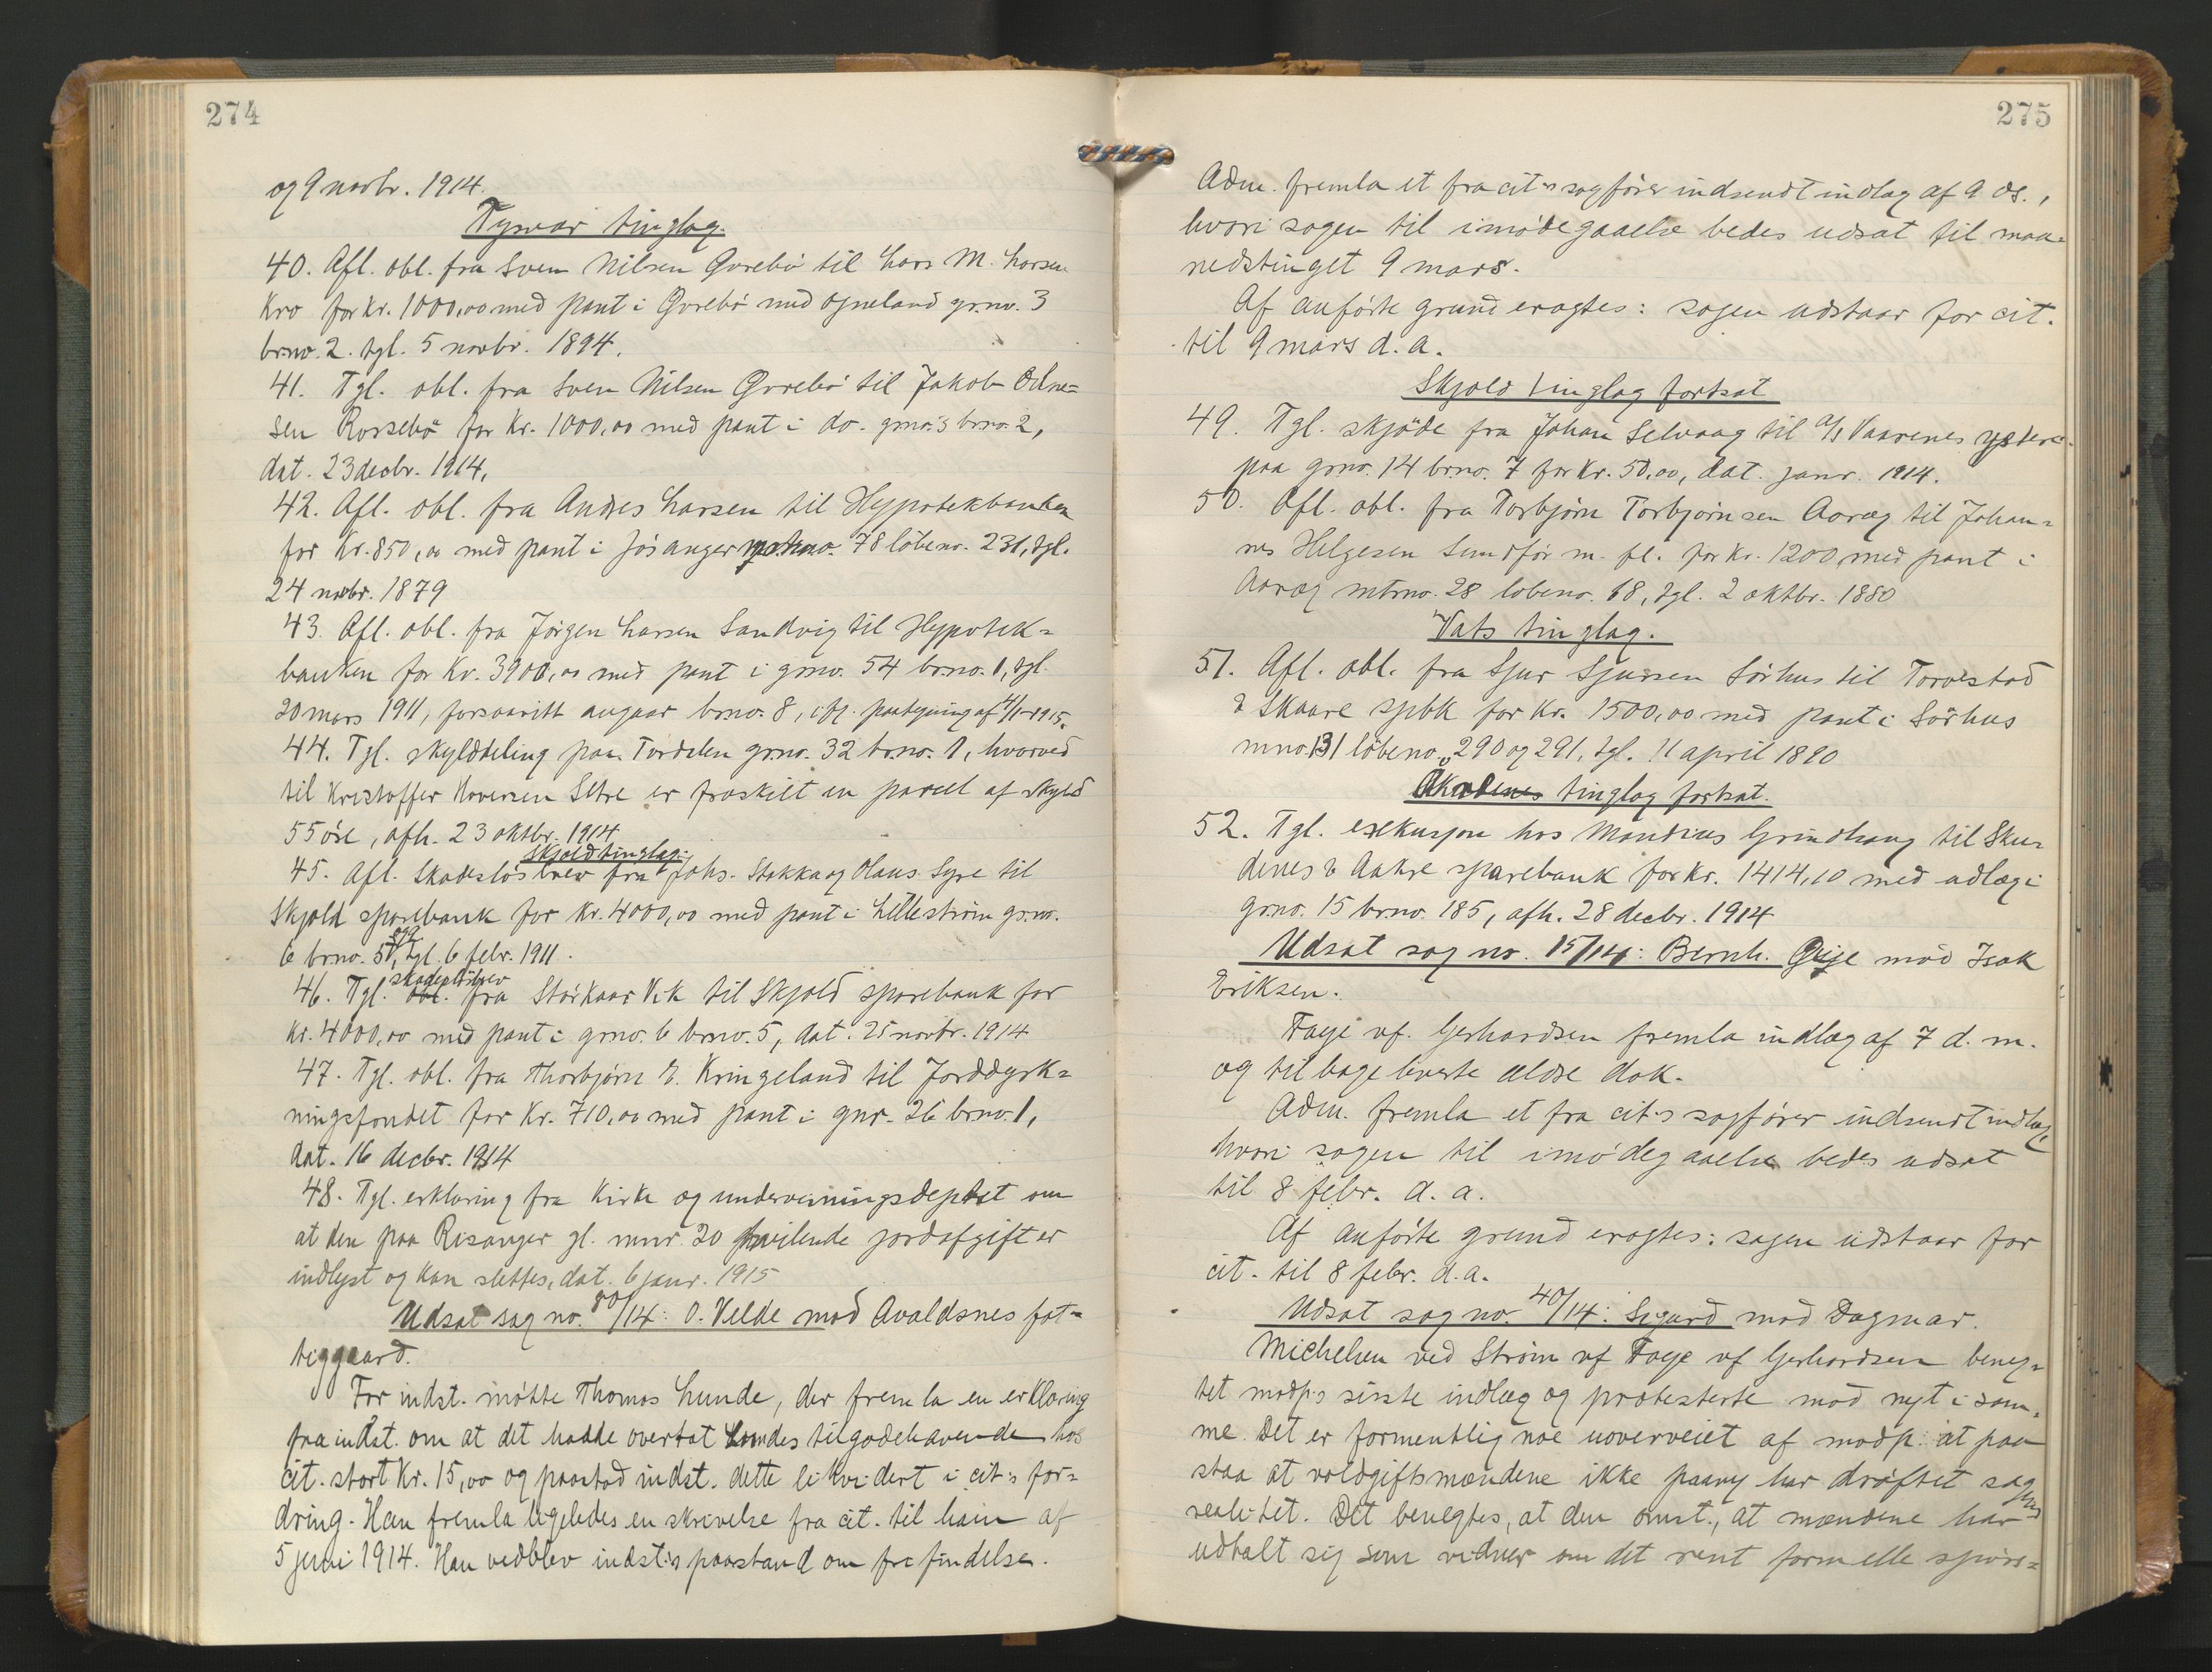 274
og 9 novbr. 1914.
Tysvær tinglag.
40. Afl. obl. fra Sven Nilsen Gorebø til Lars M. Larsen
Kro for kr. 1000,00 med pant i Gorebø med Ogneland grno. 3
brno. 2. tgl. 5 novbr. 1894.
41. Tgl. obl. fra Sven Nilsen Gorebø til Jakob Odne=
sen Rossebø for kr. 1000,00 med pant i do. grno. 3 brno. 2,
dat. 23 decbr. 1914.
42. Afl. obl. fra Andres Larsen til Hypotekbanken
for kr. 850,00 med pant i Jøsanger 78 løbeno. 231, tgl.
24 novbr. 1879
43. Afl. obl. fra Jørgen Larsen Sandvig til Hypotek=
banken for kr. 3900,00 med pant i grno. 54 brno. 1, tgl.
20 mars 1911, forsaavitt angaar brno. 8, ifg. paategning af 4/1-1915.
44. Tgl. skylddeling paa Tordelen grno. 32 brno. 1, hvorved
til Kristoffer Hoversen Setre er fraskilt en parcel af skyld
55 øre, afh. 23 oktbr. 1914
Skjold tinglag.
45. Afl. Skadesløsbrev fra Johs. Stakka og Olaus Syre til
Skjold sparebank for kr. 4000,00 med pant i Lillestrøm grno.
6 brno. 5 og 9, tgl. 6 febr. 1911.
46. Tgl. skadesløsbrev obl. fra Storkaar Vik til Skjold sparebank for
kr. 4000,00 med pant i grno. 6 brno. 5, dat. 25 novbr. 1914
47. Tgl. obl. fra Thorbjørn E. Kringeland til Jorddyrk=
ningsfondet for kr. 710,00 med pant i gnr. 26 brno. 1,
dat. 16 decbr. 1914
48. Tgl. erklæring fra Kirke og undervisningsdeptet om
at den paa Risanger gl. mnr. 20 hvilende jordafgift er
indløst og kan slettes, dat. 6 janr. 1915
Udsat sag no. 80/14: O. Velde mod Avaldsnes fat=
tiggaard.
For indst. møtte Thomas Lunde, der fremla en erklæring
fra indst. om at det hadde overtat Lundes tilgodehavende hos
cit. stort kr. 15,00 og paastod indst. dette likvidert i cit:s for=
dring. Han fremla ligeledes en skrivelse fra cit. til ham af
5 juni 1914. Han vedblev indst:s paastand om frifindelse.
275
Adm. fremla et fra cit:s sagfører indsendt indlæg af 9 ds.,
hvori sagen til imødegaaelse bedes udsat til maa=
nedstinget 9 mars.
Af anførte grund eragtes: sagen udstaar for cit.
til 9 mars d. a.
Skjold tinglag fortsat
49. Tgl. skjøde fra Johan Selvaag til A/S Vaarenes ysteri
paa grno. 14 brno. 7 for kr. 50,00, dat. janr. 1914.
50. Afl. obl. fra Torbjørn Torbjørnsen Aaræg til Johan=
nes Helgesen Sundfør m. fl. for kr. 1200 med pant i
Aaræg mtrno. 28 løbeno. 68, tgl. 2 oktbr. 1880
Vats tinglag.
51. Afl. obl. fra Sjur Sjursen Sørhus til Torvestad
& Skaare spbk for kr. 1500,00 med pant i Sørhus
mno. 131 løbeno. 290 og 291, tgl. 11 april 1890
tinglag fortsat.
52. Tgl. exekusjon hos Mandius Grindhaug til Sku=
denes & Aakre sparebank for kr. 1414,10 med udlæg i
grno. 15 brno. 185, afh. 28 decbr. 1914
Udsat sag no. 15/14: Bernh. Geije mod Isak
Eriksen.
Faye vf. Gerhardsen fremla indlæg af 7 d. m.
og tilbageleverte ældre dok.
Adm. fremla et fra cit:s sagfører indsendt indlæg,
hvori sagen til imødegaaelse bedes udsat
til 8 febr. d. a.
Af anførte grund eragtes: sagen udstaar for
cit. til 8 febr. d. a.
Udsat sag no. 40/14: Sigurd mod Dagmar.
Michelsen ved Strøm vf Faye vf Gerhardsen beneg=
tet modp:s siste indlæg og protesterte mod nyt i sam=
me. Det er formentlig noe uoverveiet af modp. at paa
staa at voldgiftsmændene ikke paany har drøftet sagens
realitet. Det benegtes, at den omst., at mændene har
udtalt sig som vidner om det rent formelle spørs=